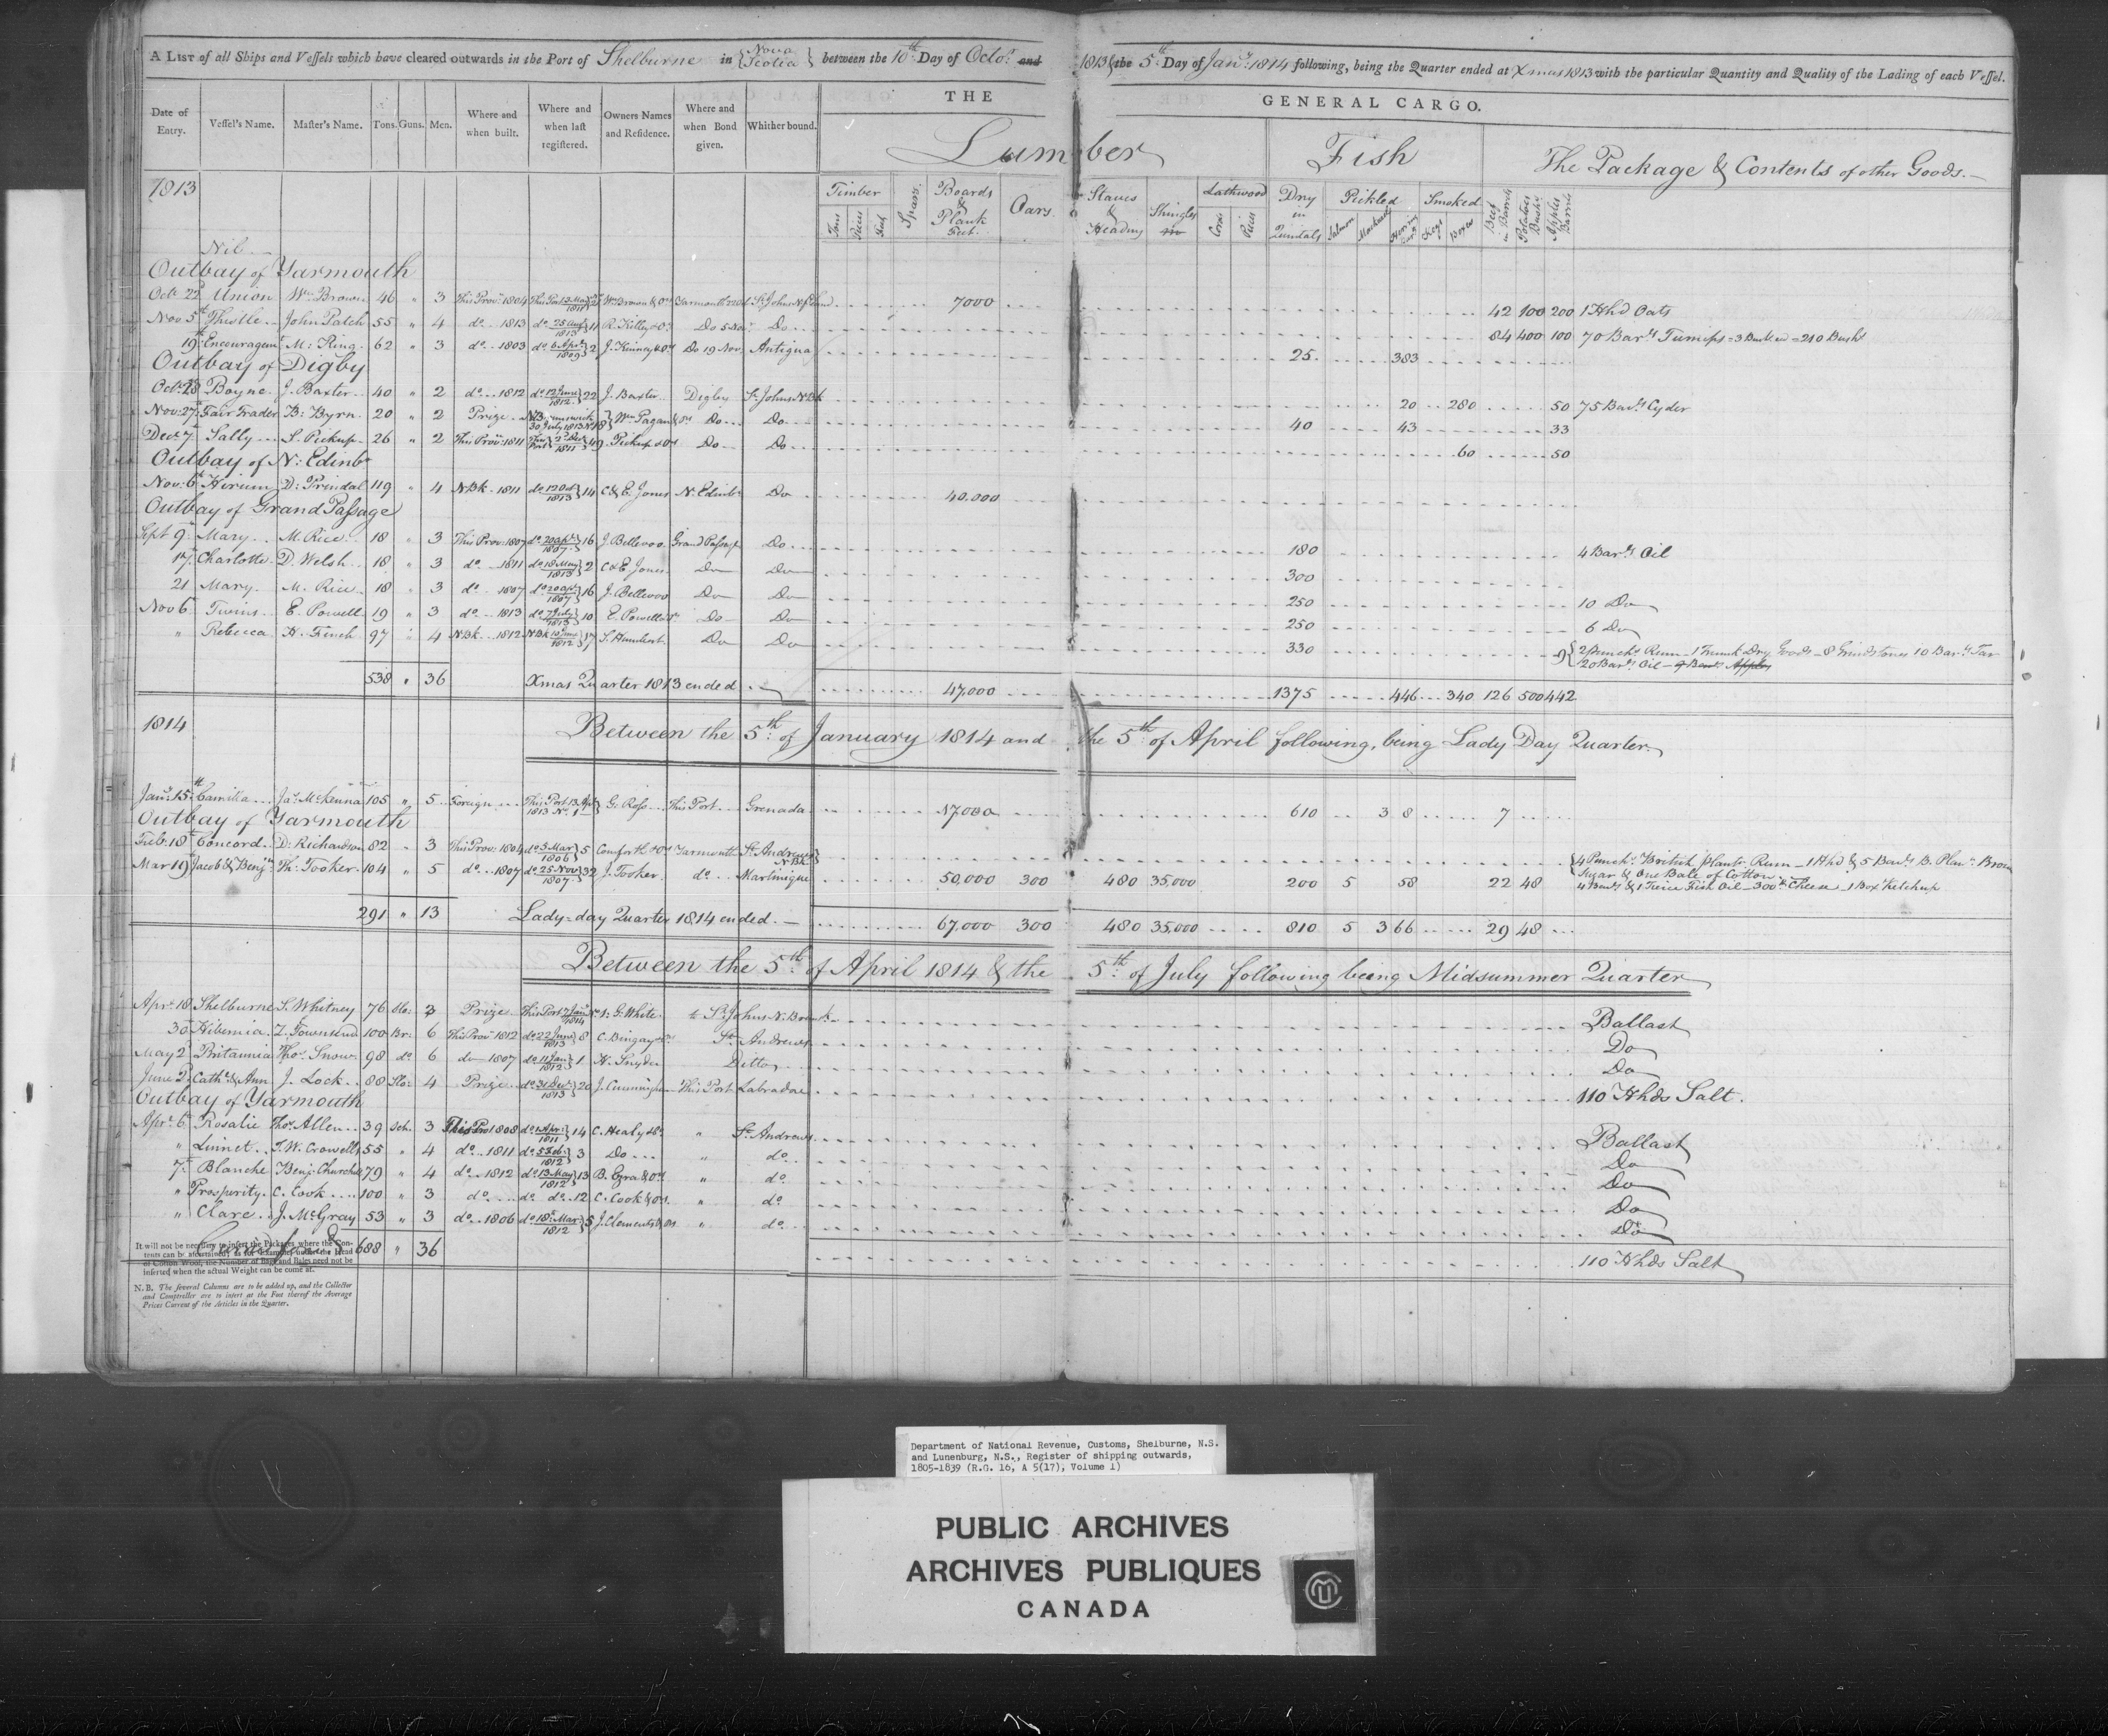 A LIST of all Ships and Vessels which have cleared outwards in the Port of Shelburne in {Nova Scotia} between the 10th Day of Octor and 1813 & the 5th Day of Jany 1814 following, being the Quarter ended at Xmas 1813 with the particular Quantity and Quality of the Lading of each Vessel.
THE GENERAL CARGO.
Date of Entry. Vessel's Name. Master's Name. Tons. Guns. Men. Where and when built. Where and when last registered. Owners Names and Residence. Where and when Bond given. Whither bound.
Lumber Fish The Package & Contents of other Goods.
1813 Timber Tons Pieces Feet Spars Boards & Plank Feet. Oars. Staves & Heading Shingles Lathwood Cords Pieces Dry in Quintals Pickled Salmon Mackarel Herring Smoked Kegs Boxes Beef in Barrels Potatoes Bushs Apples Barrels
Nil
Outbay of Yarmouth
Octr 22d Union Wm Brown 46 " 3 This Prov: 1804 Wm Brown & ors St Johns Nfland 7000 42 100 200 1 Hhd Oats
Nov 5th Thistle John Patch 55 " 4 do 1813 do 25 Augt 1813 11 R. Killey & Os Do 5 Nov Do 84 400 100 70 Barls Turnips = 3 Bush ea = 210 Bushs
19th Encouragemt M: King 62 " 3 do 1803 do 6 Apl 1809 2 J. Kinney & ors Do 19 Nov Antigua 25 383
Outbay of Digby
Oct 28 Boyne J. Baxter 40 " 2 do 1812 do 12 June 1812 22 J. Baxter Digby St Johns N.Bk 20 280 50 75 Barls Cyder
Nov: 27 Fair Trader B: Byrn 20 " 2 Prize N Brunswick 30 July 1813 No 18 Wm Pagan & ors Do Do 40 43 33
Decr 7 Sally S. Pickup 26 " 2 This Prov: 1811 This Port 2d Decr 1811 49 Pickup & ors Do Do 60 50
Outbay of N: Edinbo
Nov: 6th Hirum D: Prindal 119 " 4 N.Bk 1811 do 12 Oct 1813 14 C & E Jones N. Edinbo Do 40.000
Outbay of Grand Passage
Sept 9 Mary M. Rice 18 " 3 This Prov: 1807 do 20 apl 1807 16 J. Bellevoo Grand Passage Do 180 4 Barls Oil
17 Charlotte D. Welsh 18 " 3 do 1811 do 18 May 1813 2 C & E Jones Do Do 300
21 Mary M. Rice 18 " 3 do 1807 do 20 apl 1807 16 J. Bellevoo Do Do 250 10 Do
Nov 6 Twins E. Powell 19 " 3 do 1813 do 7 July 1813 10 E. Powell Do Do 250 6 Do
" Rebecca H. Finch 97 " 4 N.Bk 1812 N.Bk 1812 17 S. Humbert Do Do 330 9 {2 Punchs Rum - 1 Trunk Dry Goods - 8 Grindstones 10 Barls Tar
20 Barls Oil - 9 Barls Apples
538 " 36 Xmas Quarter 1813 ended 47,000 1375 446 340 126 500 442
1814 Between the 5th of January 1814 and the 5th of April following, being Lady Day Quarter
Jany 15th Camilla Jas McKenna 105 " 5 Foreign This Port 1813 No 1 G. Ross This Port Grenada 17,000 610 3 8 7
Outbay of Yarmouth
Feb: 18th Concord D: Richardson 82 " 3 This Prov: 1804 do 5 Mar 1806 5 Comforth & ors Yarmouth St Andrews N.Bk {4 Punchs British plantn Rum - 1 Hhd & 5 Barls B. Plann Brown
Sugar & One Bale of Cotton
Mar 19 Jacob & Benjn Th: Tooker 104 " 5 do 1807 do 25 Nov 1807 32 J. Tooker do Martinique 50,000 300 480 35,000 200 5 58 22 48 4 Barls & 1 Tierce Fish Oil - 300 Cheese - 1 Box Ketchup
291 " 13 Lady-day Quarter 1814 ended. 67,000 300 480 35,000 810 5 3 66 29 48
Between the 5th of April 1814 & the 5th of July following being Midsummer Quarter
Apr. 18 Shelburne S. Whitney 76 Slo: 3 Prize This Port Jan 1814 No 1: G. White St Johns N. Bruk Ballast
30 Hibernia Z. Townsend 100 Br: 6 This Prov 1812 do 22 June 1813 8 C. Bingay & ors St Andrews Do
May 2 Britannia Thos Snow 98 do 6 do 1807 do 11 Jan 1812 1 H. Snyder Ditto Do
June 2 Cathe & Ann J. Lock 88 Slo: 4 Prize do 31 Decr 1813 20 J. Cunningham This Port Labradore 110 Hhds Salt.
Outbay of Yarmouth
Apr. 6 Rosalie Thos Allen 39 Sch. 3 This Pro 1808 do Apr: 1811 14 C. Healy & ors " St Andrews Ballast
" Linnet T.W. Crowell 55 " 4 do 1811 do 5 Feb: 1812 3 Do " do Do
7 Blanche Benj: Churchill 79 " 4 do 1812 do 13 May 1812 13 B. Ezra & ors " do Do
" Prosperity C. Cook 100 " 3 do do do 12 C. Cook & ors " do Do
" Clare J. McGray 53 " 3 do 1806 do 18 Mar: 1812 5 J. Clements & ors " do Do
688 " 36 110 Hhds Salt
It will not be necessary to insert the Packages where the Contents can be ascertained; as for Example: under the Head of Cotton Wool, the Number of Bags and Bales need not be inserted when the actual Weight can be come at.
N.B. The several Columns are to be added up, and the Collector and Comptroller are to insert at the Foot thereof the Average Prices Current of the Articles in the Quarter.
Department of National Revenue, Customs, Shelburne, N.S.
and Lunenburg, N.S., Register of shipping outwards,
1805-1839 (R.G. 16, A 5(17), Volume 1)
PUBLIC ARCHIVES
ARCHIVES PUBLIQUES
CANADA